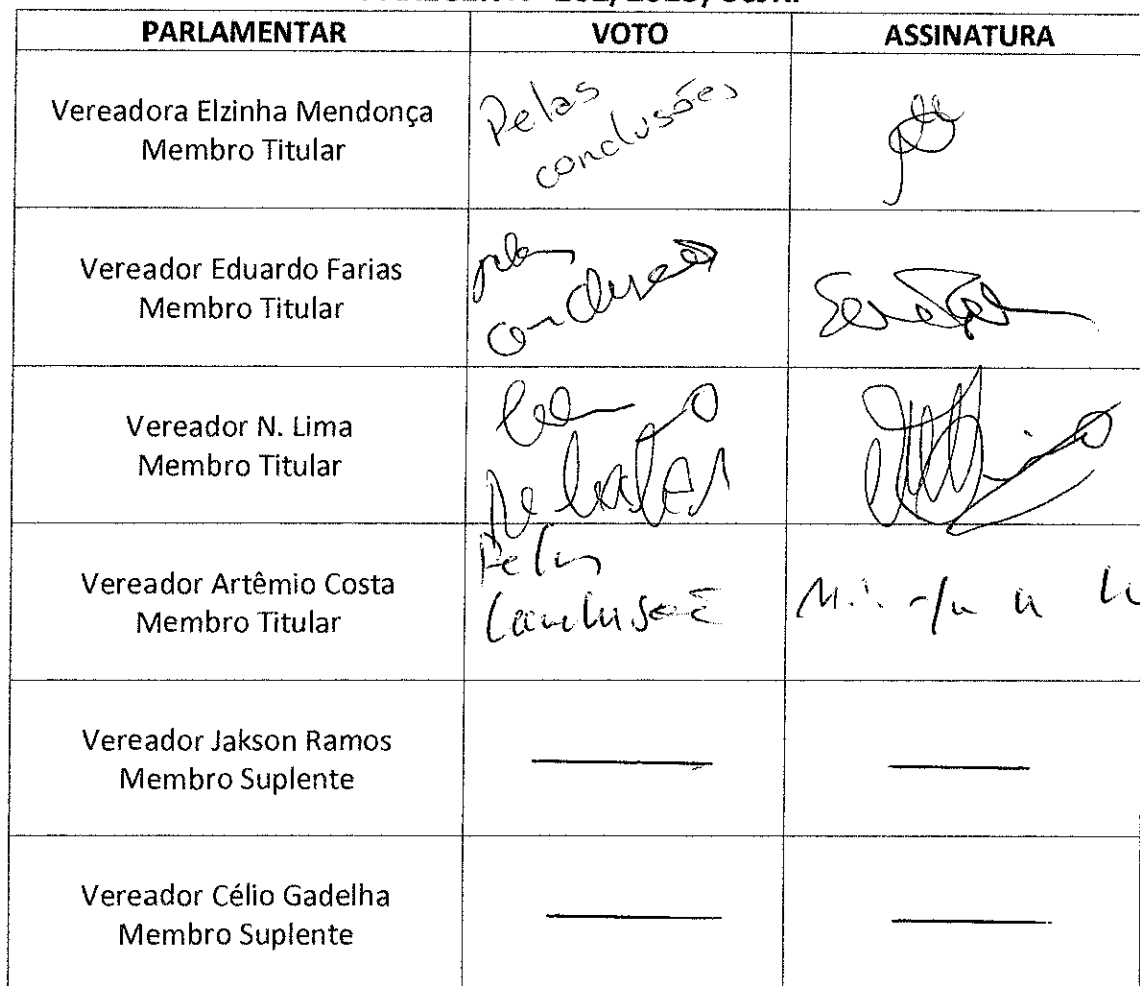 PARLAMENTAR VOTO ASSINATURA
Vereadora Elzinha Mendonça
Membro Titular
Pelas
conclusões
Vereador Eduardo Farias
Membro Titular
pelas
conclusões
Vereador N. Lima
Membro Titular
Vereador Artêmio Costa
Membro Titular
Pelas
Vereador Jakson Ramos
Membro Suplente
Vereador Célio Gadelha
Membro Suplente